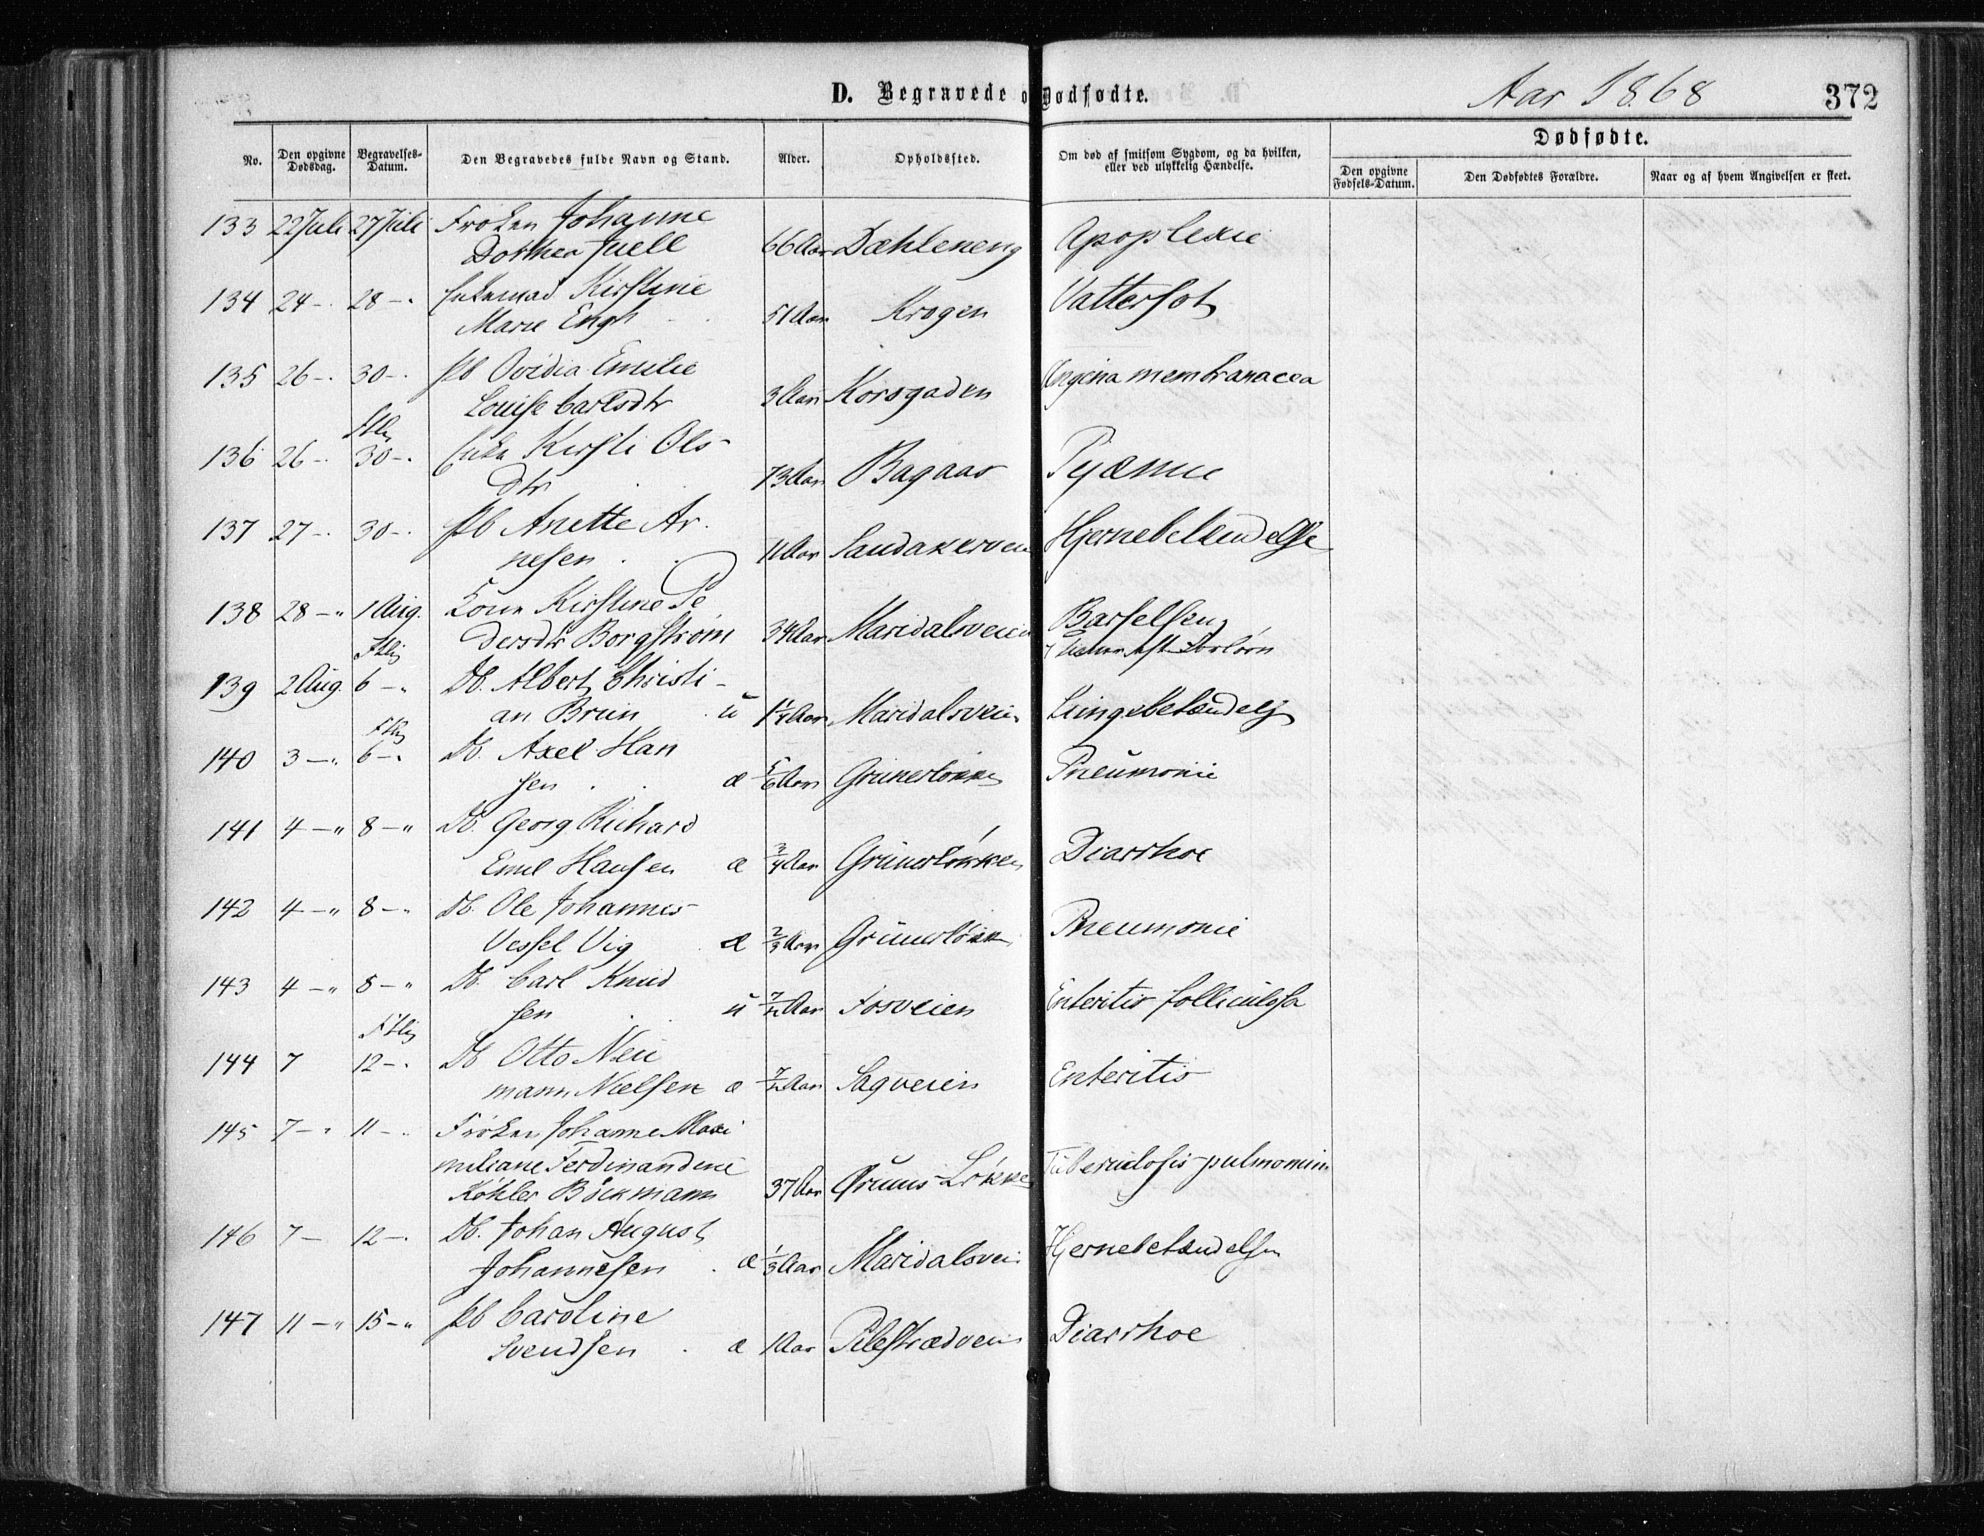 D. Begravede o Dødfødte.
Aar 1868
372
No.
Den opgivne Dødsdag.
Begravelses-Datum.
Den Begravedes fulde Navn og Stand.
Alder.
Opholdssted.
Om død af smitsom Sygdom, og da hvilken,
eller ved ulykkelig Hændelse.
Dødfødte.
Den opgivne Fødsels-Datum.
Den Dødfødtes Forældre.
Naar og af hvem Angivelsen er skeet.
133 22 Juli 27 Juli Frøken Johanne
Dorthea Juell 66 Aar Dæhleneng Apoplexie
134 24 - 28 - Kirstine
Marie Engh 51 Aar Krogen Vattersot
135 26 - 30 - Pb Ovidia Emilie
Louise Carlsdtr 3 Aar Korsgaden Angina membranacea
136 26 - 30 - Enke Kirsti Ols
dtr 73 Aar Bagaas Pyæmie
137 27 - 30 - Pb Anette Ar
nesen 11 Aar Sandakerveien Hjernebetændelse
138 28 - " 1 Aug. Kone Kirstine Pe
dersdtr Borgstrøm 34 Aar Maridalsveien Barselseng
139 2 Aug. 6 - Db. Albert Christi -
an Brun u 1 1/4 Aar Maridalsveien Lungebetændelse
140 3 - " 6 - Db. Axel Han
sen æ 5/6 Aar Grünerløkken Pneumonie
141 4 - " 8 - " Db. Georg Richard
Emil Hansen æ 3/4 Aar Grünerløkken Diarrhoe
142 4 - " 8 - Db. Ole Johannes
Vessel Vig æ 2/3 Aar Grünerløkken Pneumonie
143 4 - " 8 - " Db. Carl Knud
sen u 7/12 Aar Fosveien Enteritis folliculosa
144 7 12 - Db Otto Neu
mann Nielsen æ 7/12 Aar Sagveien Enteritis
145 7 - 11 - Frøken Johanne Maxi
miliane Ferdinandine
Köhler Böckmann 37 Aar Grüners Løkken Tuberculosis pulmonum
146 7 - 12 - Db. Johan August
Johannesen æ 1/3 Aar Maridalsvei Hjernebetændelse
147 11 - " 15 - " Pb Caroline
Svendsen æ 1 Aar Pilestrædveien Diarrhoe